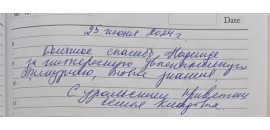 Date
25 июня 2024 г
Большое спасибо Надежде
за интересную, увлекательную
экскурсию, новые знания.
С уральским приветом
семья